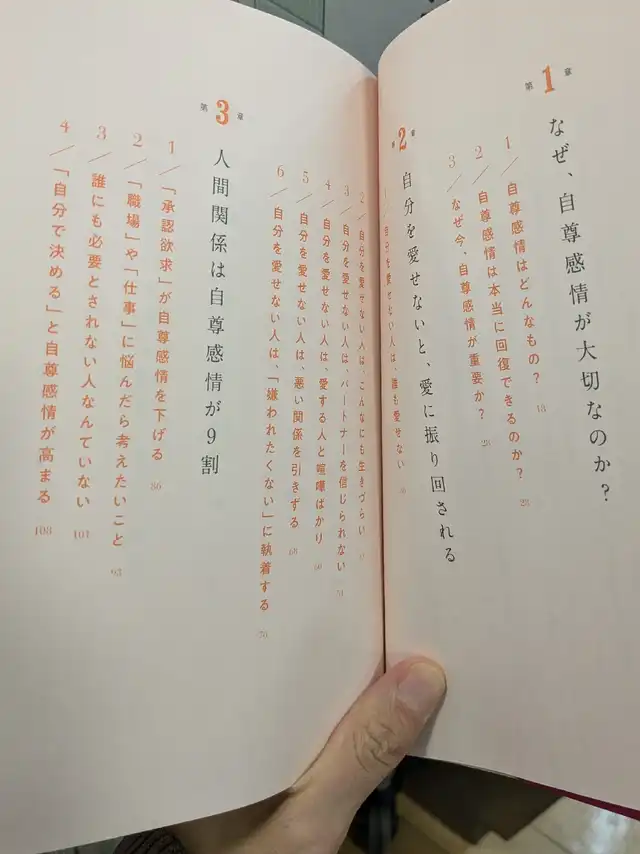 第1章
なぜ、自尊感情が大切なのか?
1/自尊感情はどんなもの? 18
2/自尊感情は本当に回復できるのか? 23
3/なぜ今、自尊感情が重要か? 28
第2章
自分を愛せないと、愛に振り回される
1/自分を愛せない人は、誰も愛せない
2/自分を愛せない人は、こんなにも生きづらい
3/自分を愛せない人は、パートナーを信じられない 51
4/自分を愛せない人は、愛する人と喧嘩ばかり
5/自分を愛せない人は、悪い関係を引きずる 68
6/自分を愛せない人は、「嫌われたくない」に執着する
第3章
人間関係は自尊感情が9割
1/「承認欲求」が自尊感情を下げる 86
2/「職場」や「仕事」に悩んだら考えたいこと 93
3/誰にも必要とされない人なんていない 101
4/「自分で決める」と自尊感情が高まる 108